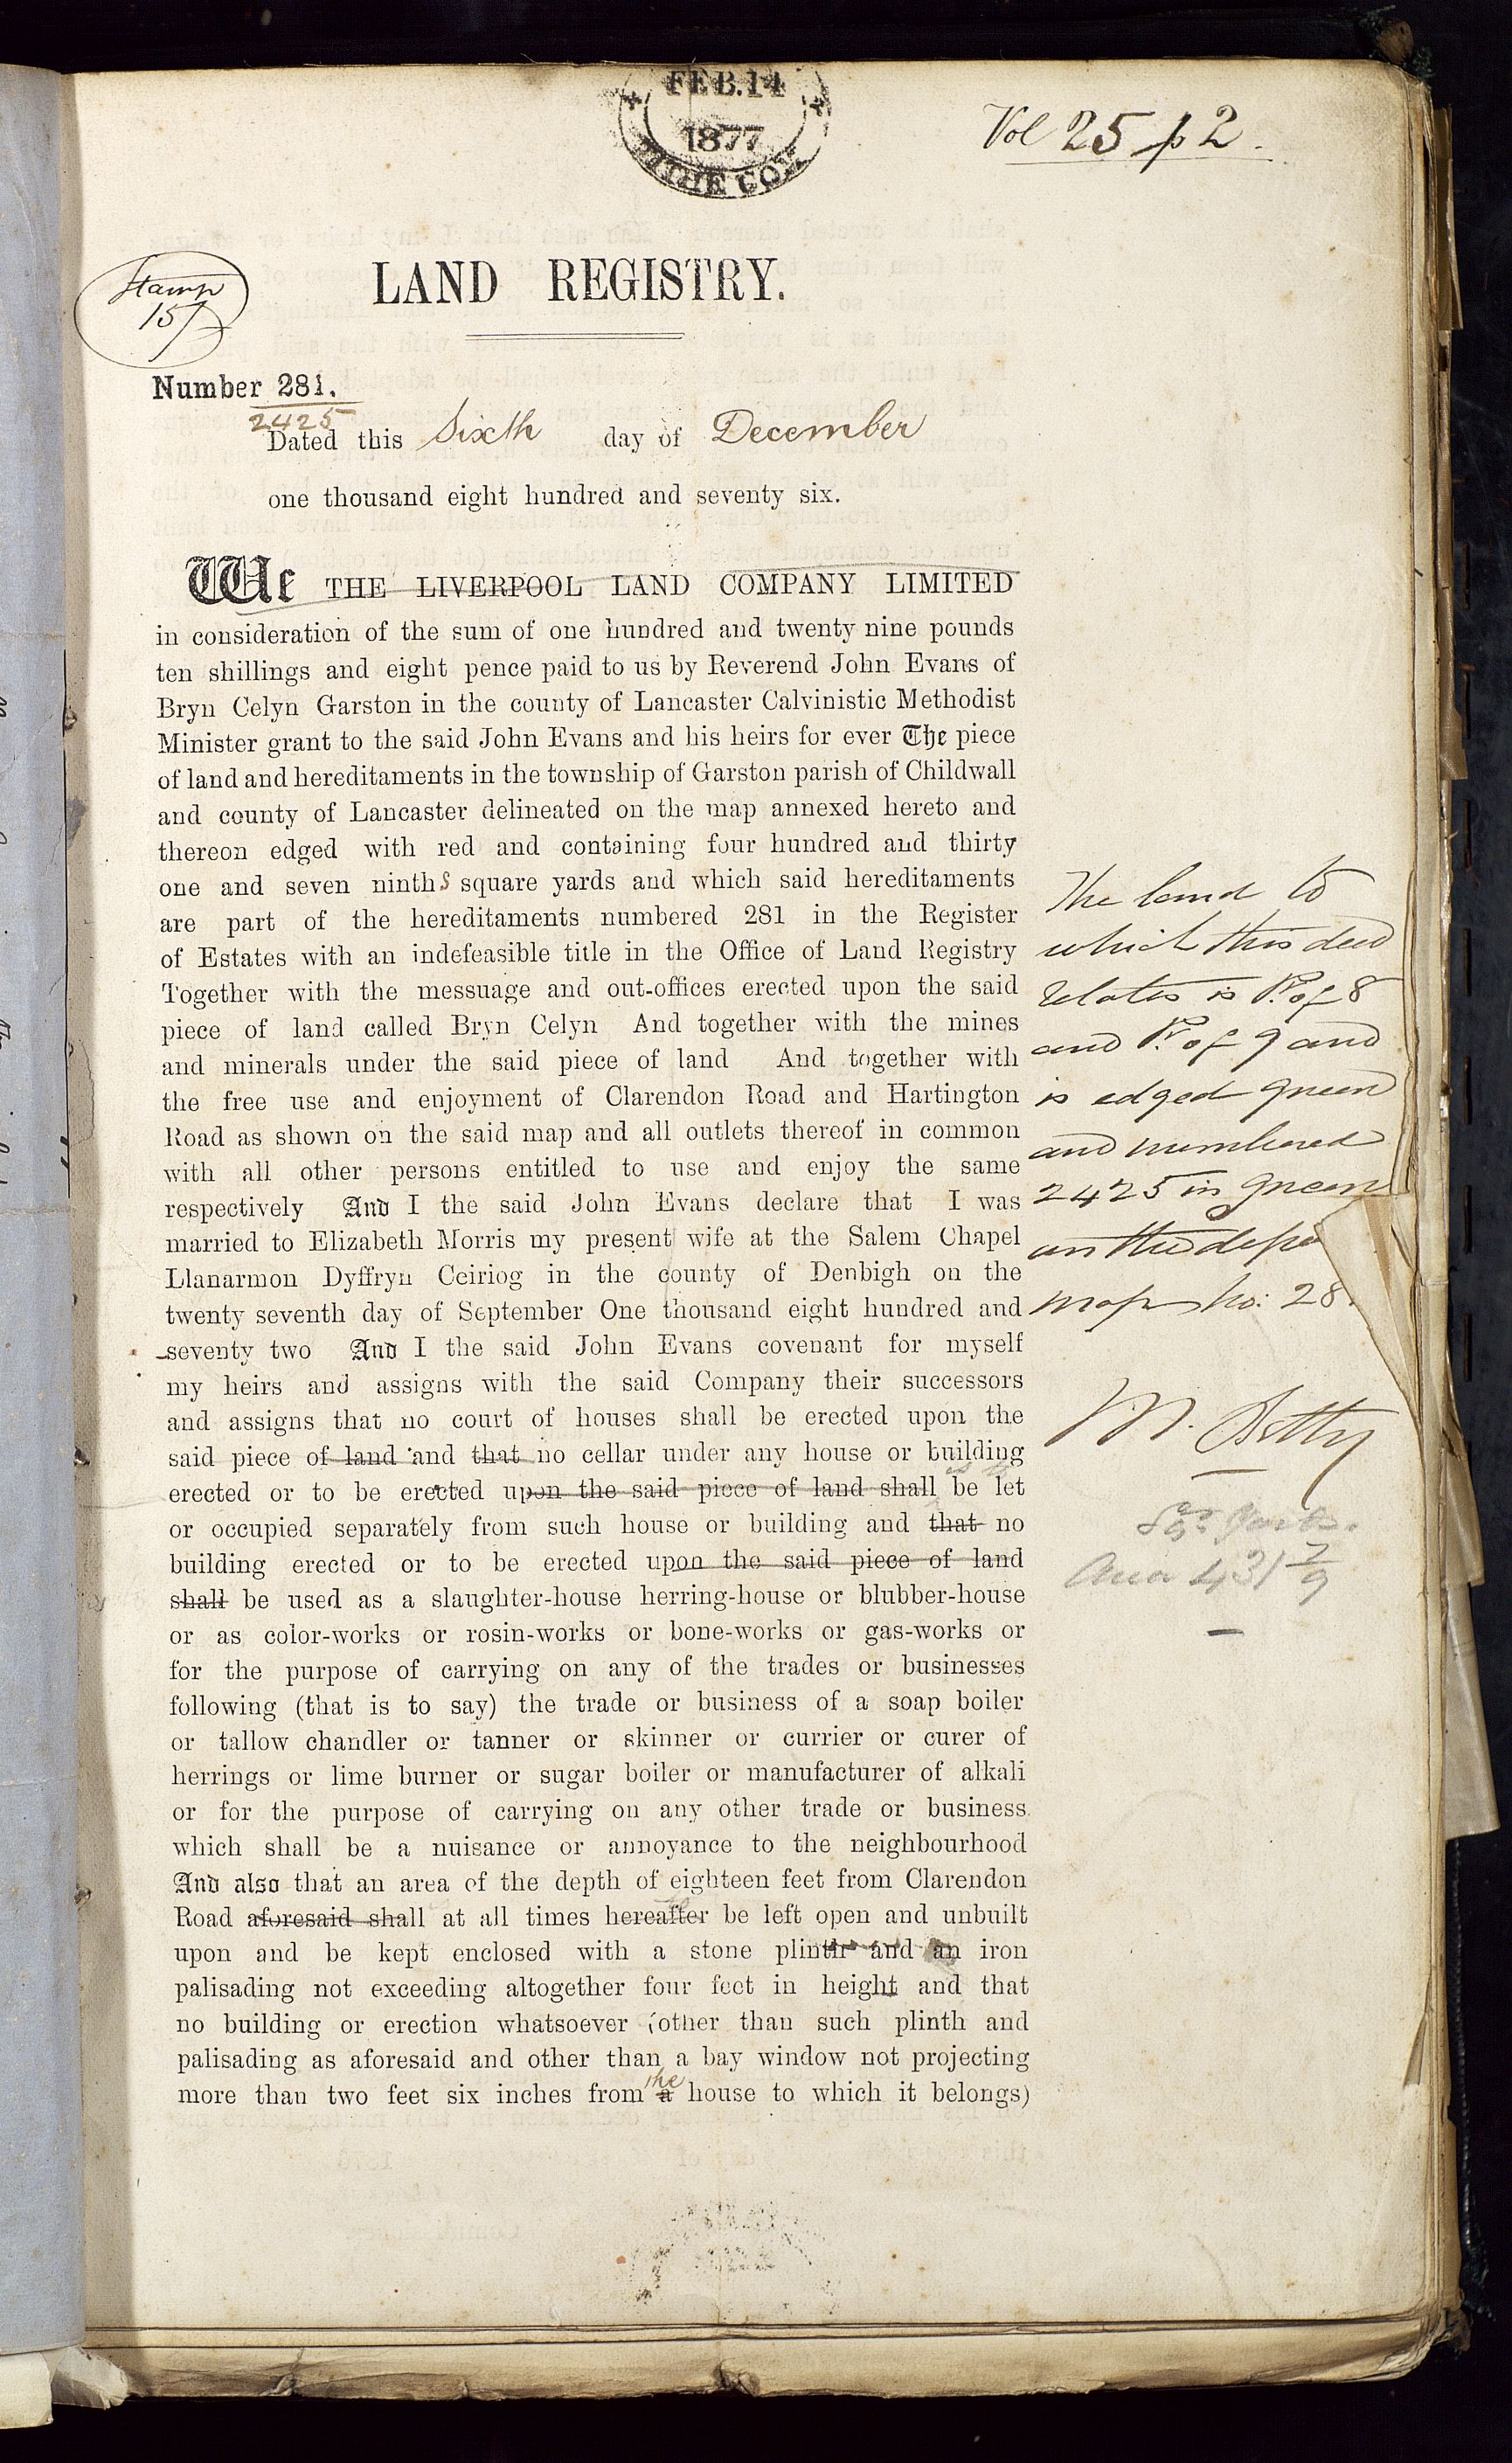 FEB. 14
1877
Vol 25 p 2.
Stamp
15/
LAND REGISTRY.
Number 281.
2425
Dated this Sixth day of December
one thousand eight hundred and seventy six.
We THE LIVERPOOL LAND COMPANY LIMITED
in consideration of the sum of one hundred and twenty nine pounds
ten shillings and eight pence paid to us by Reverend John Evans of
Bryn Celyn Garston in the county of Lancaster Calvinistic Methodist
Minister grant to the said John Evans and his heirs for ever The piece
of land and hereditaments in the township of Garston parish of Childwall
and county of Lancaster delineated on the map annexed hereto and
thereon edged with red and containing four hundred and thirty
one and seven ninths square yards and which said hereditaments
are part of the hereditaments numbered 281 in the Register
of Estates with an indefeasible title in the Office of Land Registry
Together with the messuage and out-offices erected upon the said
piece of land called Bryn Celyn And together with the mines
and minerals under the said piece of land And together with
the free use and enjoyment of Clarendon Road and Hartington
Road as shown on the said map and all outlets thereof in common
with all other persons entitled to use and enjoy the same
respectively And I the said John Evans declare that I was
married to Elizabeth Morris my present wife at the Salem Chapel
Llanarmon Dyffryn Ceiriog in the county of Denbigh on the
twenty seventh day of September One thousand eight hundred and
seventy two And I the said John Evans covenant for myself
my heirs and assigns with the said Company their successors
and assigns that no court of houses shall be erected upon the
said piece of land and that no cellar under any house or building
erected or to be erected upon the said piece of land shall be let
or occupied separately from such house or building and that no
building erected or to be erected upon the said piece of land
shall be used as a slaughter-house herring-house or blubber-house
or as color-works or rosin-works or bone-works or gas-works or
for the purpose of carrying on any of the trades or businesses
following (that is to say) the trade or business of a soap boiler
or tallow chandler or tanner or skinner or currier or curer of
herrings or lime burner or sugar boiler or manufacturer of alkali
or for the purpose of carrying on any other trade or business
which shall be a nuisance or annoyance to the neighbourhood
And also that an area of the depth of eighteen feet from Clarendon
Road aforesaid shall at all times hereafter be left open and unbuilt
upon and be kept enclosed with a stone plinth and an iron
palisading not exceeding altogether four feet in height and that
no building or erection whatsoever (other than such plinth and
palisading as aforesaid and other than a bay window not projecting
the
more than two feet six inches from a house to which it belongs)
The land to
which this deed
relates is Pt. of 8
and Pt. of 9 and
is edged green
and numbered
2425 in green
on the depo
map No: 28
Sq. Yards.
Area 431 7/9